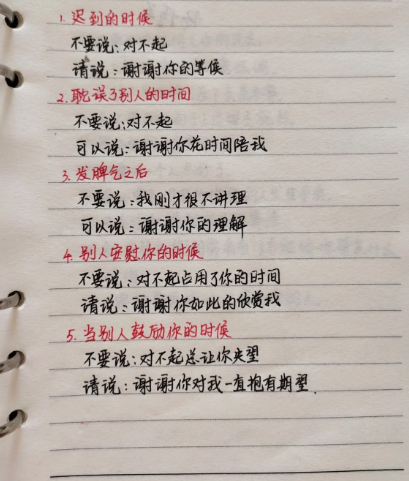 1.迟到的时候
不要说:对不起
请说:谢谢你的等候
2.耽误了别人的时间
不要说:对不起
可以说:谢谢你花时间陪我
3.发脾气之后
不要说:我刚才很不讲理
可以说:谢谢你的理解
4.别人安慰你的时候
不要说:对不起占用了你的时间
请说:谢谢你如此的欣赏我
5.当别人鼓励你的时候
不要说:对不起总让你失望
请说:谢谢你对我一直抱有期望.